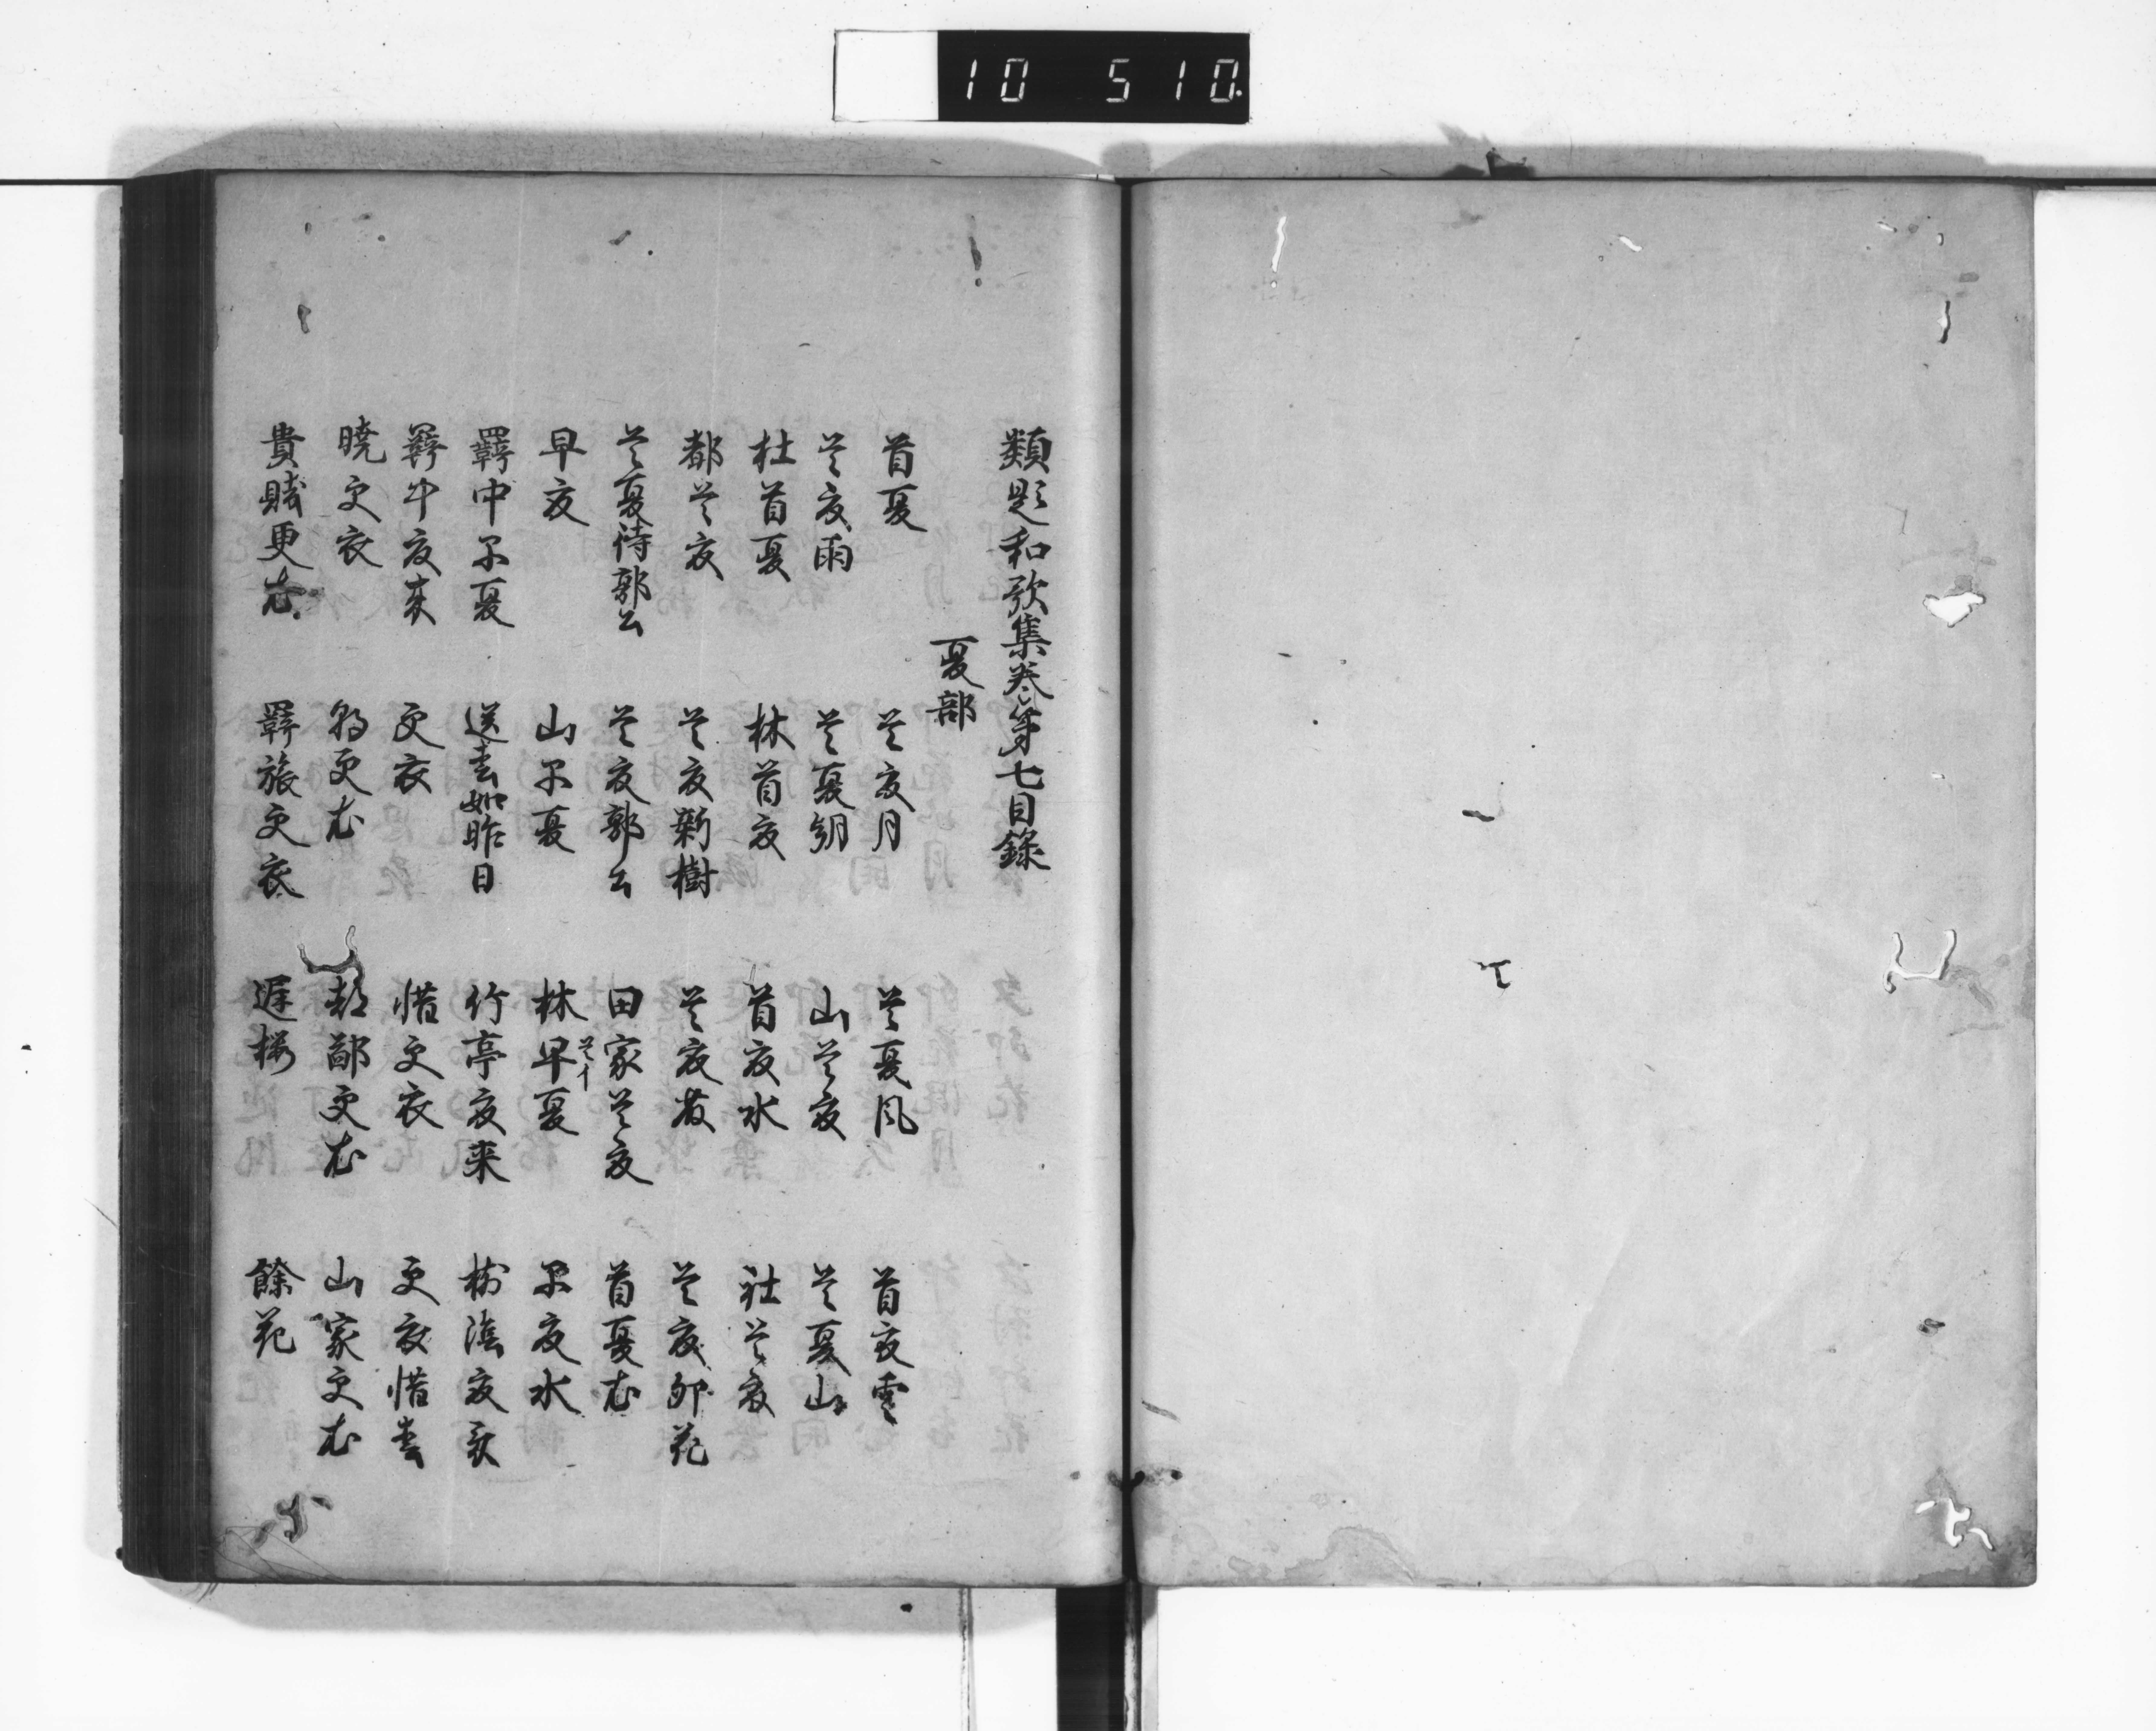 10 510.
類題和歌集巻第七目録
夏部
首夏 首夏月 首夏風 首夏雲
首夏雨 首夏朝 山首夏 首夏山
杜首夏 林首夏 首夏水 社首夏
都首夏 首夏新樹 首夏藤 首夏卯花
首夏待郭公 首夏郭公 田家首夏 首夏衣
早夏 山早夏 林早夏 早夏水
首イ
羇中早夏 送春如昨日 竹亭夏来 樹陰夏来
羇中夏来 更衣 惜更衣 更衣惜春
暁更衣 朝更衣 都鄙更衣 山家更衣
貴賎更衣 羇旅更衣 遅桜 餘花